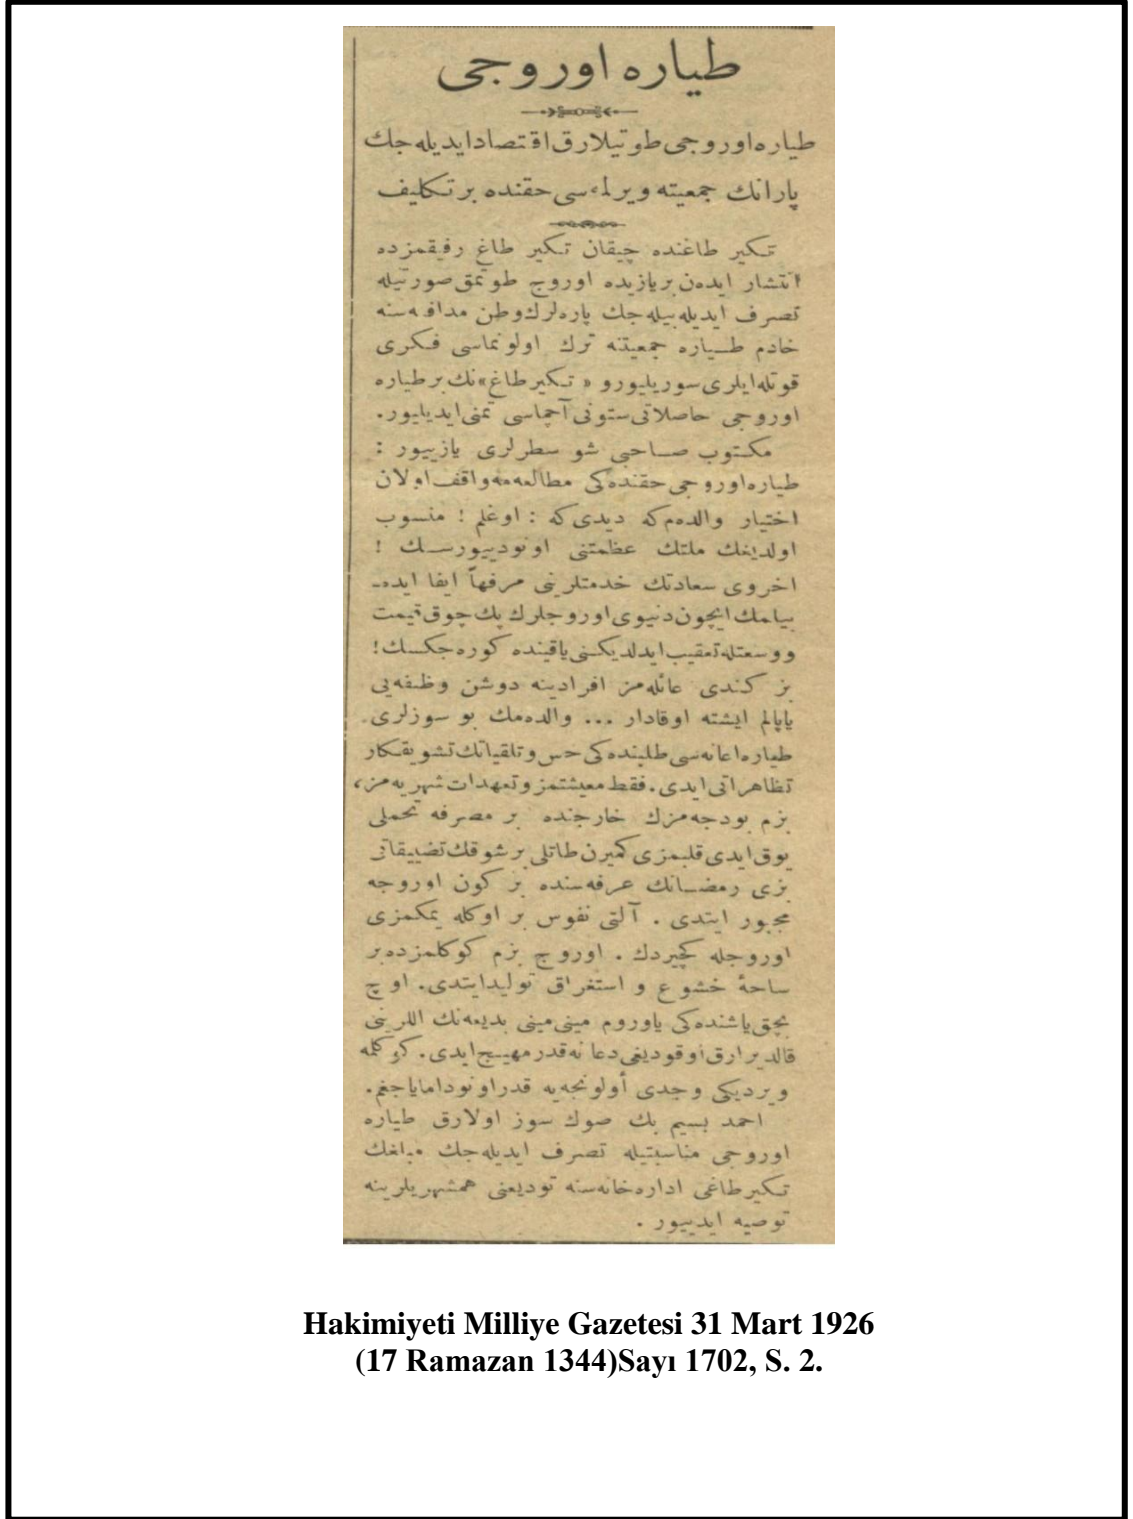 طیاره اوروجی
طیاره اوروجی طوتیلارق اقتصاد ایدیله جك
پارانك جمعیته ویرلمه سی حقنده بر تكلیف
تكیر طاغنده چیقان تكیر طاغ رفیقمزده
انتشار ایدەن بریازیده اوروج طوتمق صورتیله
تصرف ایدیله بیله جك پاره لرك وطن مدافعه سنه
خادم طیاره جمعیتنه ترك اولونماسی فكری
قوتله ایلری سوریلیورو « تكیر طاغ» نك بر طیاره
اوروجی حاصلاتی ستونی آچماسی تمنی ایدیلیور.
مكتوب صاحبی شو سطرلری یازییور :
طیاره اوروجی حقنده كی مطالعه مه واقف اولان
اختیار والده م كه دیدی كه : اوغلم ! منسوب
اولدیغك ملتك عظمتنی اونودییورسك !
اخروی سعادتك خدمتلرینی مرفهاً ایفا ایده‌ـ
بیلمك ایچون دنیوی اوروجلرك پك چوق قیمت
ووسعتله تعقیب ایدلدیكنی یاقینده كوره جكسك!
بز كندی عائله مز افرادینه دوشن وظیفه یی
یاپالم ایشته اوقادار ... والده مك بو سوزلری
طیاره اعانه سی طلبنده كی حس و تلقیاتك تشویقكار
تظاهراتی ایدی. فقط معیشتمز و تعهدات شهریه مز،
بزم بودجه مزك خارجنده بر مصرفه تحملی
یوق ایدی قلبمزی كمیرن طاتلی بر شوقك تضییقاتی
بزی رمضانك عرفه سنده بر كون اوروجه
مجبور ایتدی . آلتی نفوس بر اوكله یمكمزی
اوروجله كچیردك . اوروج بزم كوكلمزده بر
ساحهٔ خشوع و استغراق تولید ایتدی. اوچ
بچق یاشنده كی یاوروم مینی مینی بدیعه نك اللرینی
قالدیرارق اوقودیغی دعا نه قدر مهیج ایدی.
ویردیكی وجدی أولونجه یه قدر اونودامایاجغم.
احمد بسیم بك صوك سوز اولارق طیاره
اوروجی مناسبتیله تصرف ایدیله جك مبلغك
تكیر طاغی اداره خانه سنه تودیعنی همشهریلرینه
توصیه ایدییور .
Hakimiyeti Milliye Gazetesi 31 Mart 1926
(17 Ramazan 1344)Sayı 1702, S. 2.